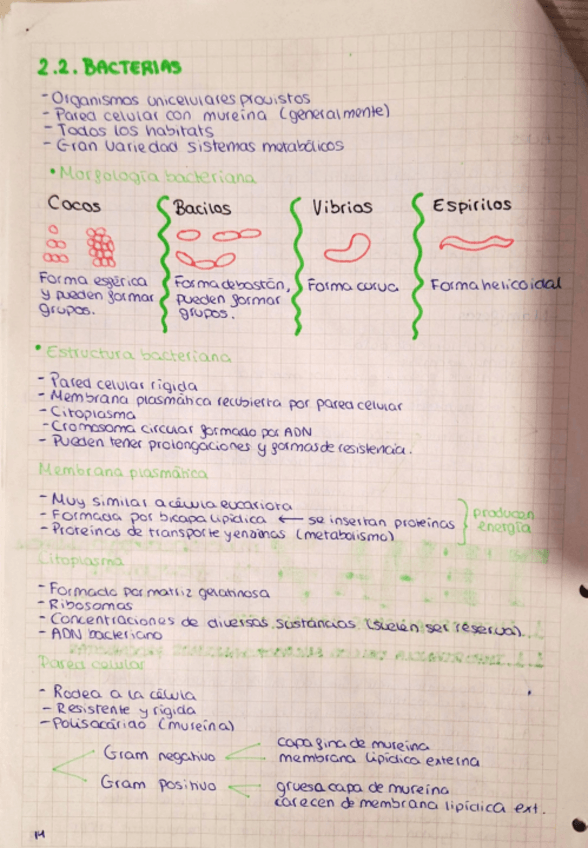 2.2. BACTERIAS
- Organismos unicelulares provistos
- Pared celular con mureína (generalmente)
- Todos los habitats
- Gran variedad sistemas metabólicos
• Morfología bacteriana
Cocos
Forma esférica
y pueden formar
grupos.
Bacilos
Forma de bastón,
pueden formar
grupos.
Vibrios
Forma curva
Espirilos
Forma helicoidal
• Estructura bacteriana
- Pared celular rígida
- Membrana plasmática recubierta por pared celular
- Citoplasma
- Cromosoma circular formado por ADN
- Pueden tener prolongaciones y formas de resistencia.
Membrana plasmática
- Muy similar a célula eucariota
- Formada por bicapa lipídica ← se insertan proteínas
- Proteínas de transporte y enzimas (metabolismo)
producen
energía
Citoplasma
- Formado por matriz gelatinosa
- Ribosomas
- Concentraciones de diversas sustancias (suelen ser reserva).
- ADN bacteriano
Pared celular
- Rodea a la célula
- Resistente y rígida
- Polisacárido (mureína)
Gram negativo
capa fina de mureína
membrana lipídica externa
Gram positivo
gruesa capa de mureína
carecen de membrana lipídica ext.
14